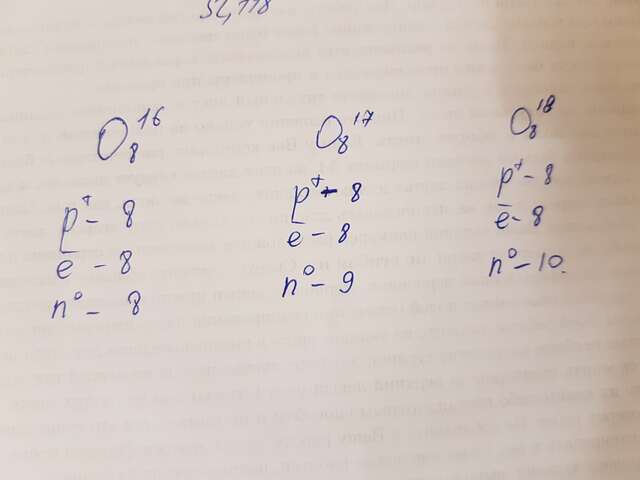 O₈¹⁶
p⁺ - 8
e⁻ - 8
n⁰ - 8
O₈¹⁷
p⁺ - 8
e⁻ - 8
n⁰ - 9
O₈¹⁸
p⁺ - 8
e⁻ - 8
n⁰ - 10.